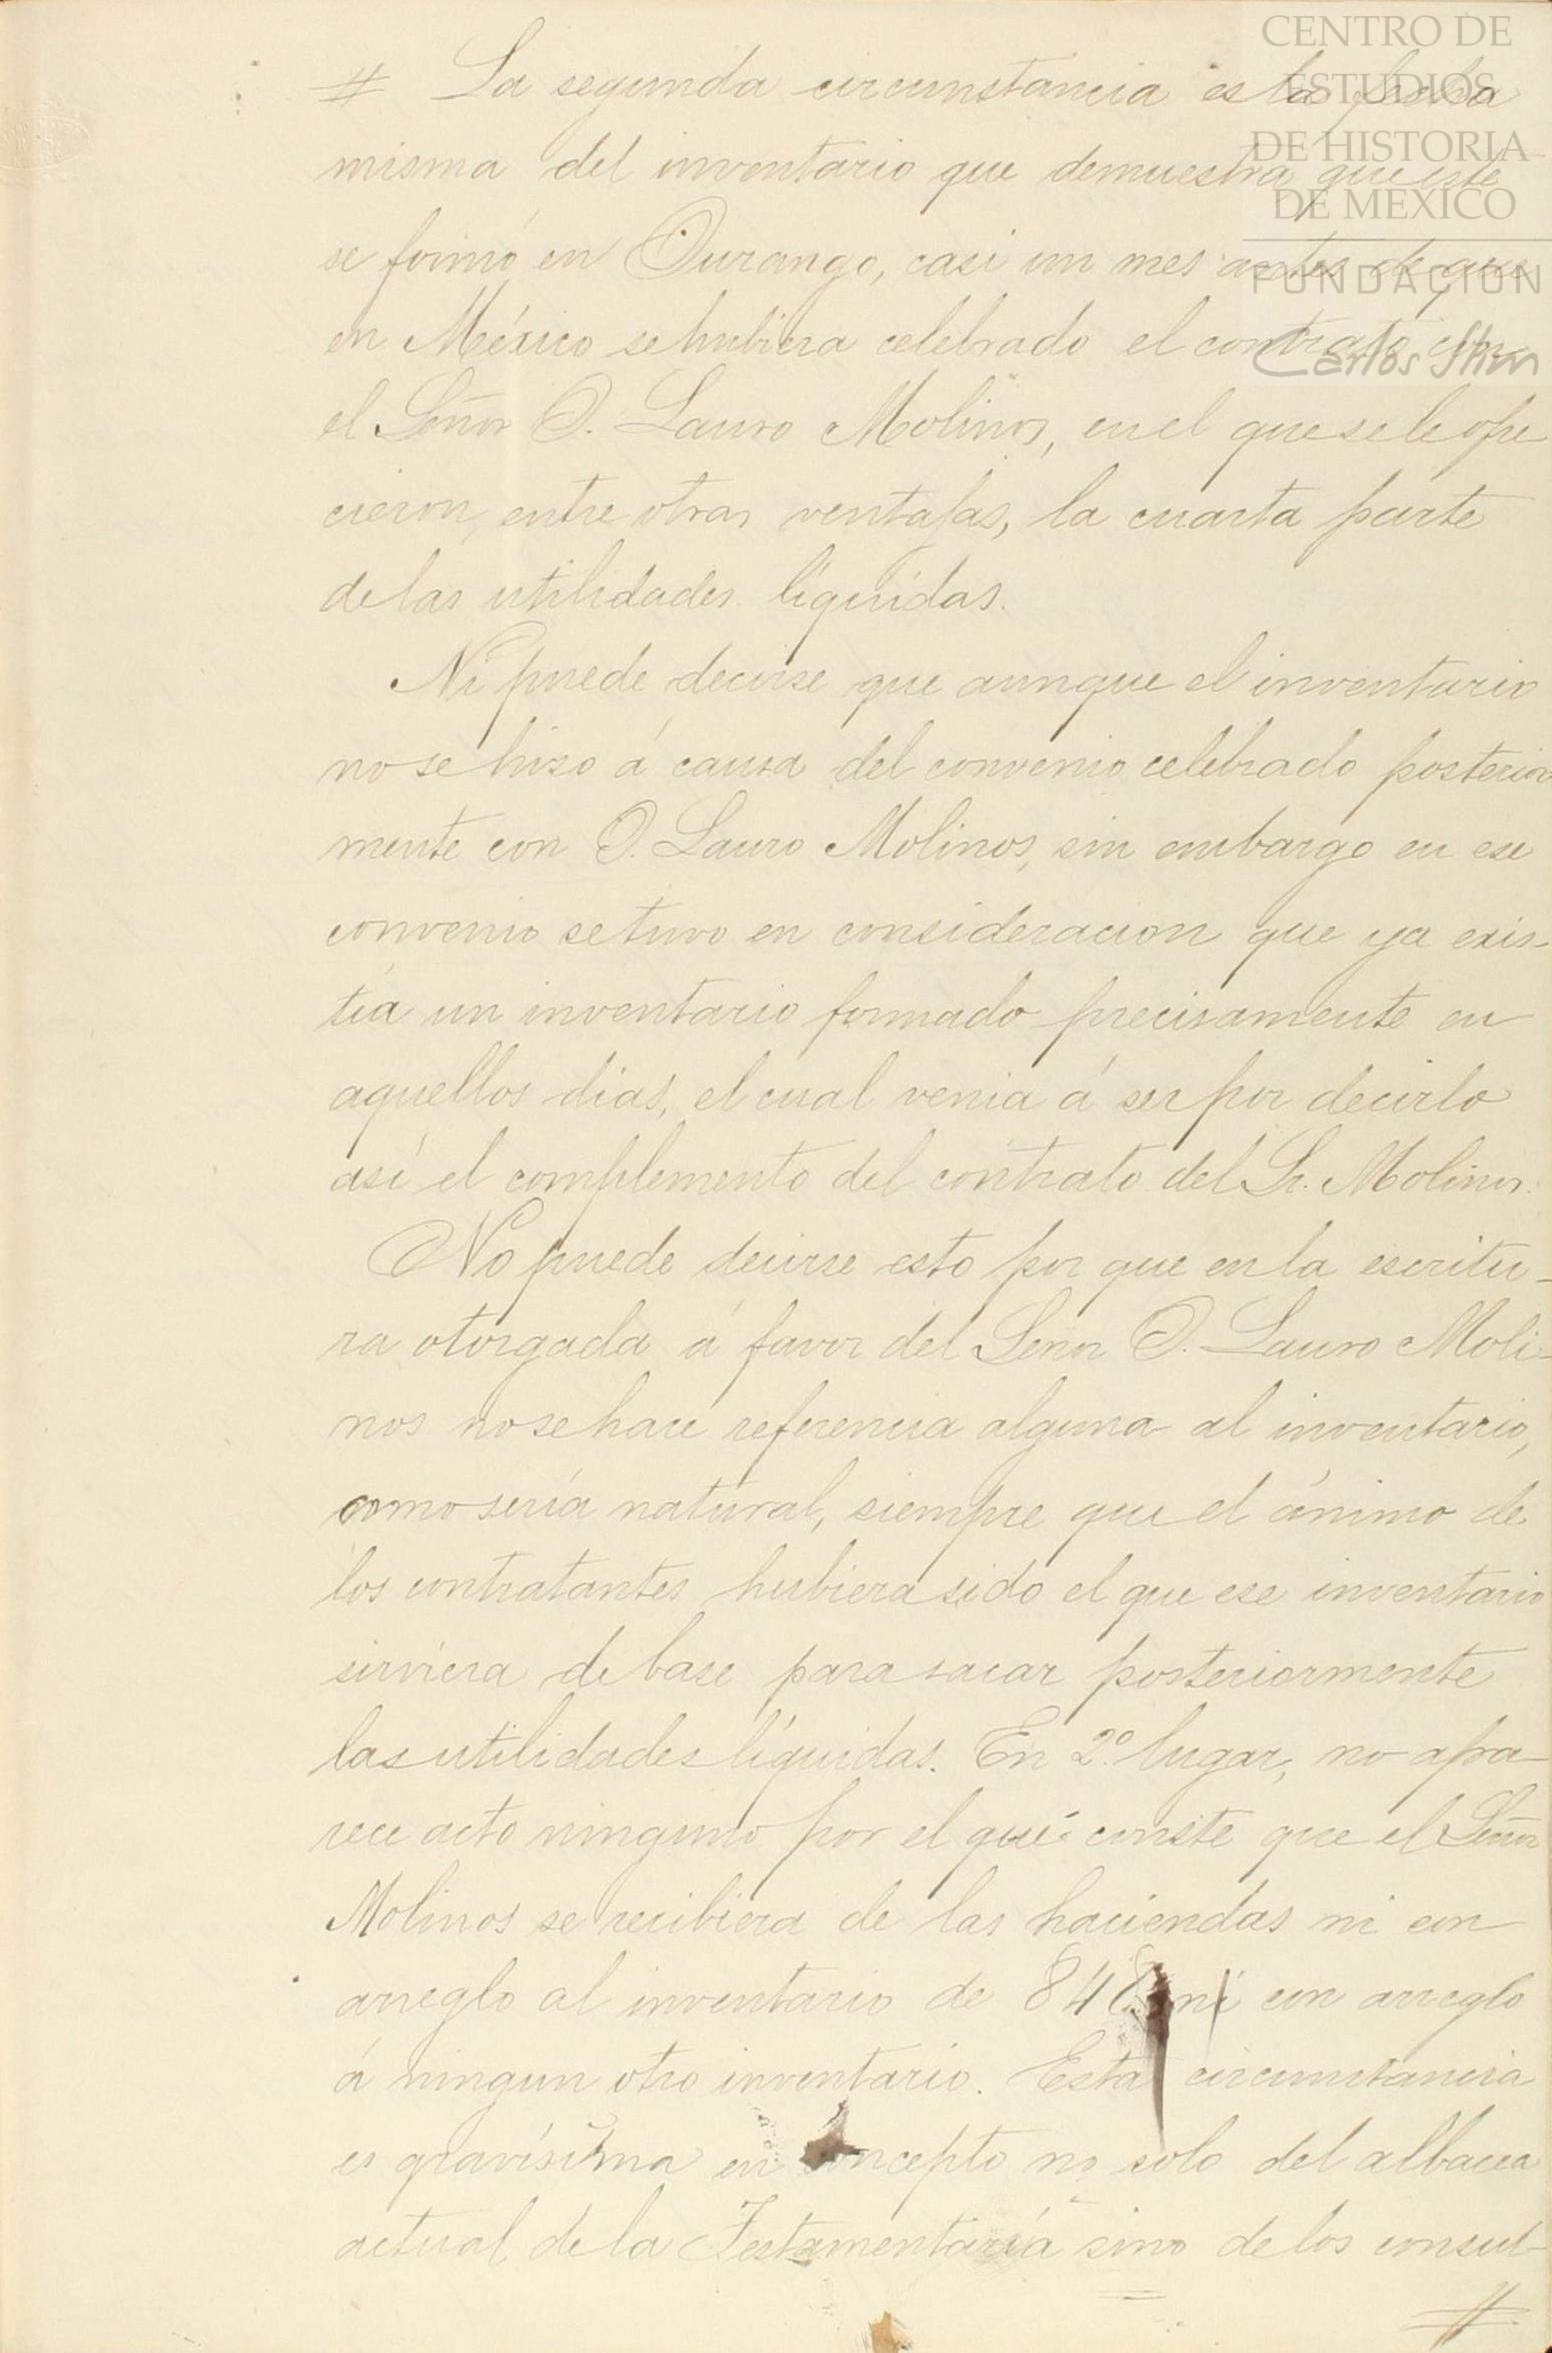 CENTRO DE
ESTUDIOS
DE HISTORIA
DE MEXICO
FUNDACION
Carlos Slim
# La segunda circunstancia es la fecha
misma del inventario que demuestra que este
se formó en Durango, casi un mes antes de que
en México se hubiera celebrado el contrato con
el Señor D. Lauro Molinos, en el que se le ofre
cieron, entre otras ventajas, la cuarta parte
de las utilidades líquidas.
Ni puede decirse que aunque el inventario
no se hizo á causa del convenio celebrado posterior
mente con D. Lauro Molinos, sin embargo en ese
convenio se tuvo en consideracion que ya exis-
tía un inventario formado precisamente en
aquellos dias, el cual venia á ser por decirlo
así el complemento del contrato del Sr. Molinos.
No puede decirse esto por que en la escritu-
ra otorgada á favor del Señor D. Lauro Moli-
nos no se hace referencia alguna al inventario,
como sería natural, siempre que el ánimo de
los contratantes hubiera sido el que ese inventario
sirviera de base para sacar posteriormente
las utilidades líquidas. En 2º lugar, no apa-
rece acto ninguno por el que conste que el Señor
Molinos se recibiera de las haciendas ni con
arreglo al inventario de 848 ni con arreglo
á ningun otro inventario. Esta circunstancia
es gravísima en concepto no solo del albacea
actual de la Testamentaría sino de los consul-
#